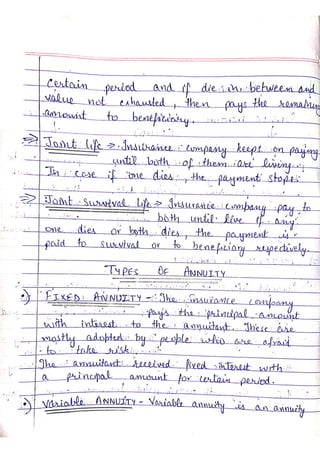 Certain period and if die in between and
value not exhausted, then pays the remaining
amount to beneficiary.
Joint life → Insurance company keeps on paying
until both of them are living.
In case if one dies, the payment stops.
Joint Survival life → Insurance company pay to
both until live if any
one dies or both dies, the payment is
paid to survival or to beneficiary respectively.
TYPES OF ANNUITY
FIXED ANNUITY - The insurance company
pays the principal amount
with interest to the annuitant. These are
mostly adopted by people who are afraid
to take risk.
The annuitant received fixed interest with
a principal amount for certain period.
Variable ANNUITY - Variable annuity is an annuity